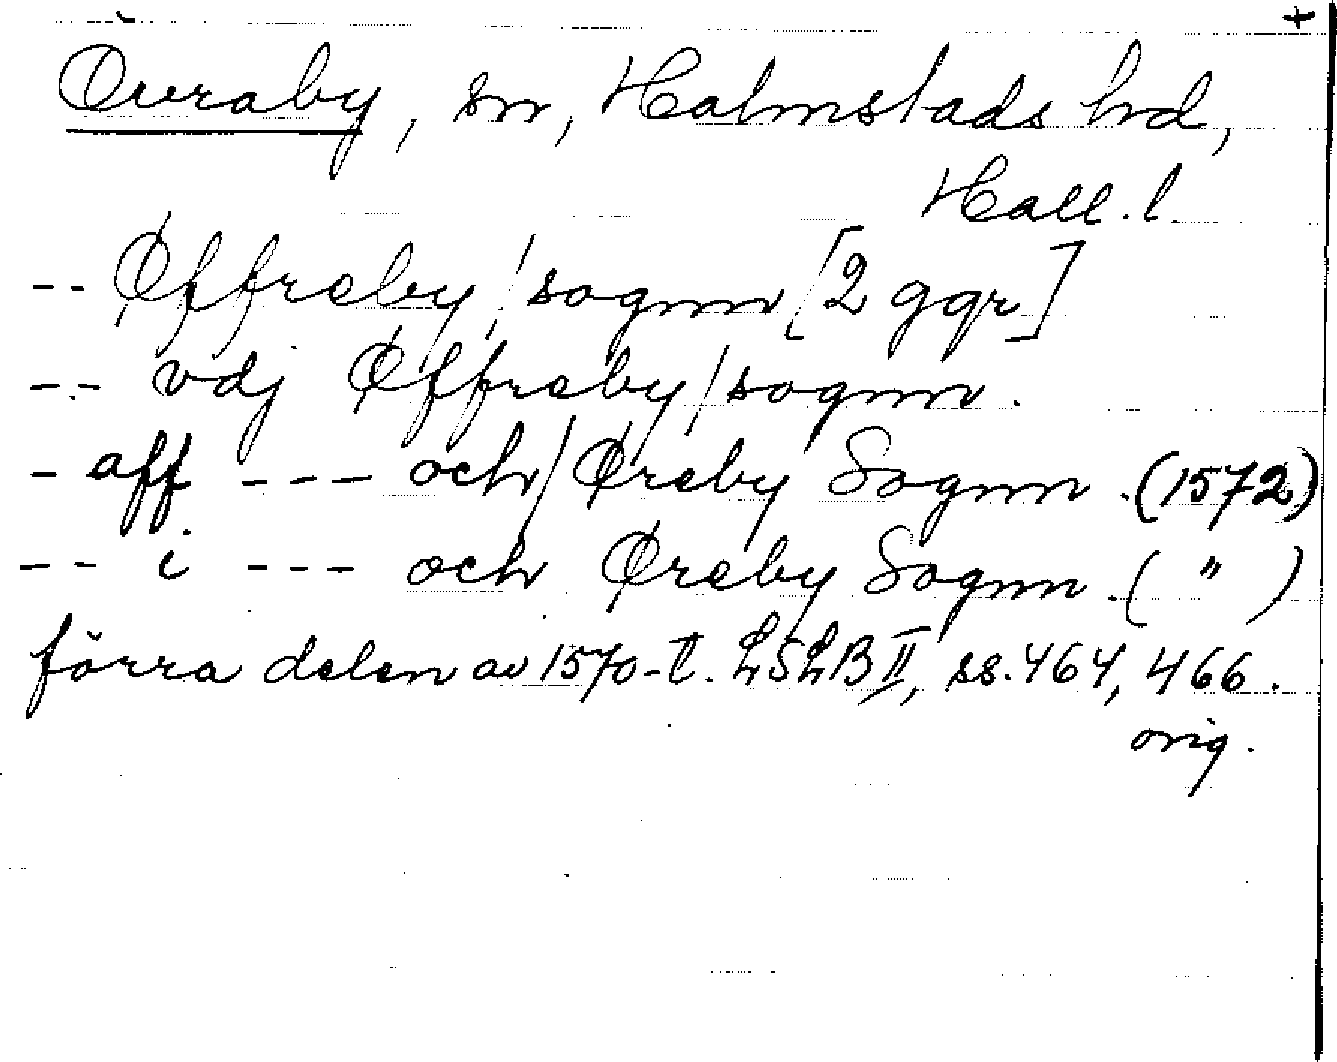 +
Övraby, sn, Halmstads hd,
Hall. l.
-- Øffreby/sognn [2 ggr]
-- vdj Øffreby/sognn.
- aff --- och/Øreby Sognn. (1572)
-- i --- och Øreby Sognn. ( " )
förra delen av 1570-t. LSLB II, ss. 464, 466.
orig.